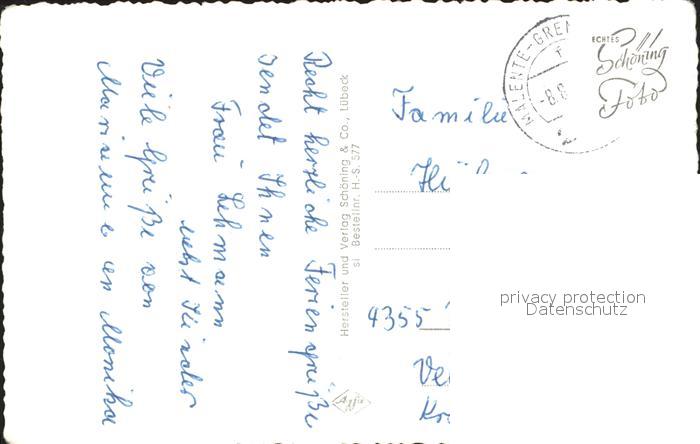 Recht herzliche Feriengrüße
sendet Ihnen
Frau Lehmann
nebst Kinder
Viele Grüße von
Marianne an Monika
Hersteller und Verlag Schöning & Co., Lübeck
si Bestellnr. H.-S. 577
Agfa
MALENTE-GREM
-8.8
ECHTES
Schöning
Foto
Familie
4355
privacy protection
Datenschutz